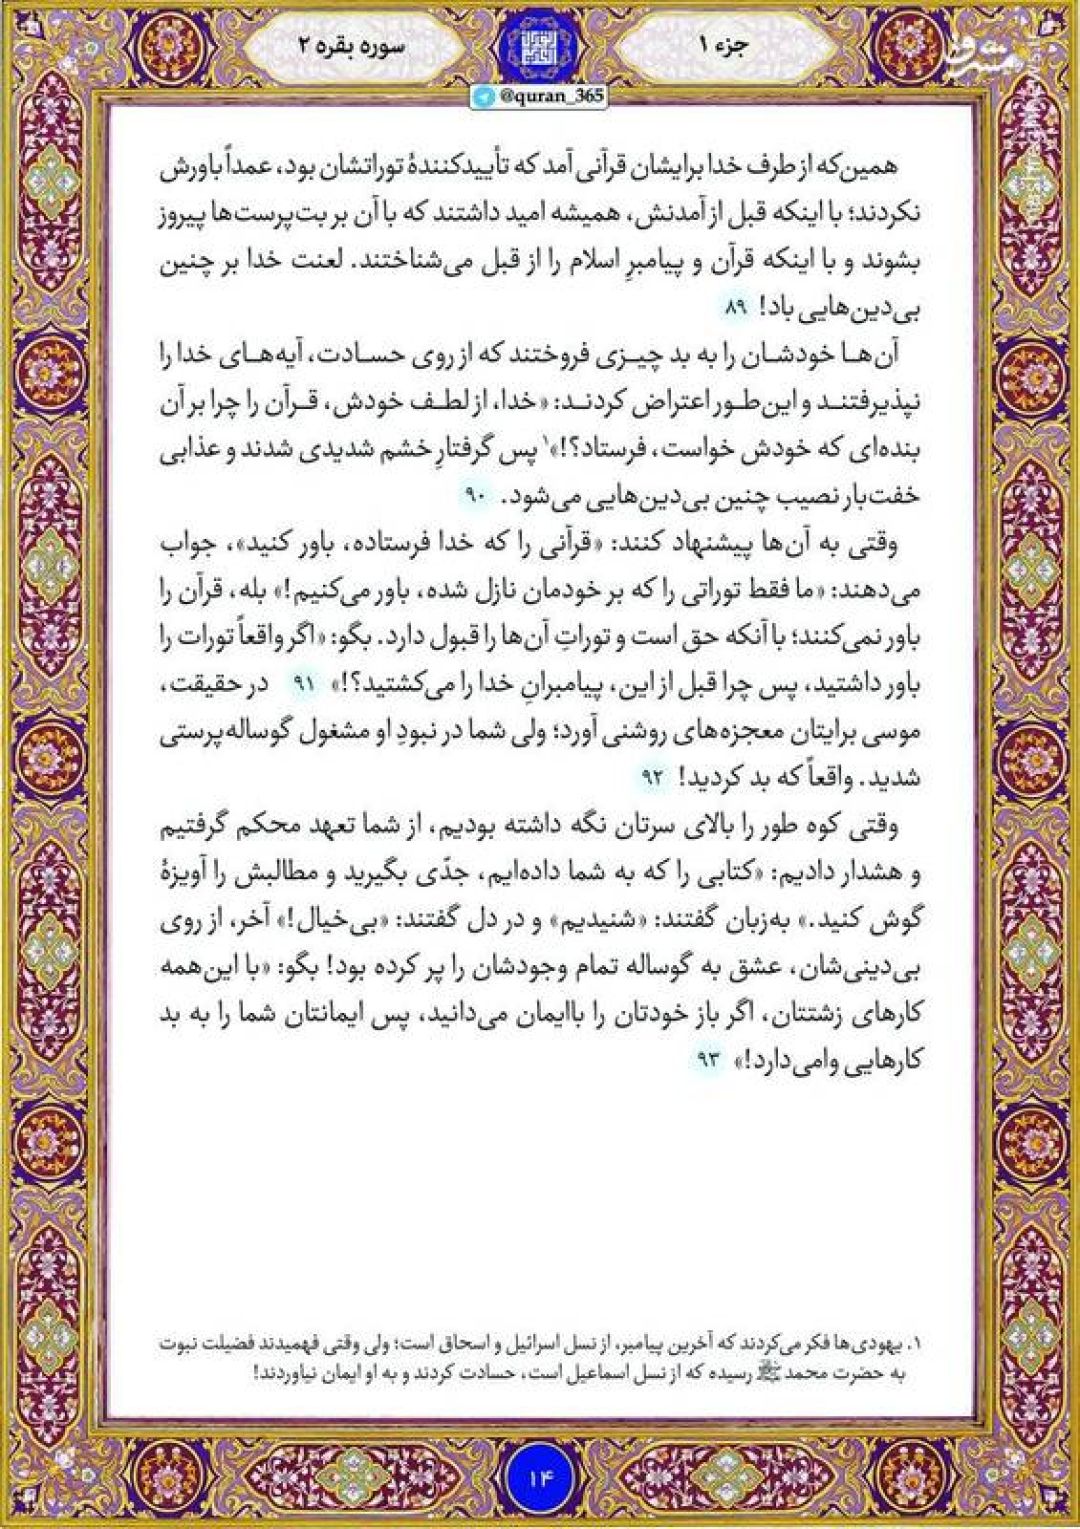 جزء ۱
سوره بقره ۲
@quran_365
همین‌که از طرف خدا برایشان قرآنی آمد که تأییدکنندهٔ توراتشان بود، عمداً باورش
نکردند؛ با اینکه قبل از آمدنش، همیشه امید داشتند که با آن بر بت‌پرست‌ها پیروز
بشوند و با اینکه قرآن و پیامبرِ اسلام را از قبل می‌شناختند. لعنت خدا بر چنین
بی‌دین‌هایی باد! ۸۹
آن‌ها خودشان را به بد چیزی فروختند که از روی حسادت، آیه‌های خدا را
نپذیرفتند و این‌طور اعتراض کردند: «خدا، از لطف خودش، قرآن را چرا بر آن
بنده‌ای که خودش خواست، فرستاد؟!»۱ پس گرفتارِ خشم شدیدی شدند و عذابی
خفت‌بار نصیب چنین بی‌دین‌هایی می‌شود. ۹۰
وقتی به آن‌ها پیشنهاد کنند: «قرآنی را که خدا فرستاده، باور کنید»، جواب
می‌دهند: «ما فقط توراتی را که بر خودمان نازل شده، باور می‌کنیم!» بله، قرآن را
باور نمی‌کنند؛ با آنکه حق است و توراتِ آن‌ها را قبول دارد. بگو: «اگر واقعاً تورات را
باور داشتید، پس چرا قبل از این، پیامبرانِ خدا را می‌کشتید؟!» ۹۱ در حقیقت،
موسی برایتان معجزه‌های روشنی آورد؛ ولی شما در نبودِ او مشغول گوساله‌پرستی
شدید. واقعاً که بد کردید! ۹۲
وقتی کوه طور را بالای سرتان نگه داشته بودیم، از شما تعهد محکم گرفتیم
و هشدار دادیم: «کتابی را که به شما داده‌ایم، جدّی بگیرید و مطالبش را آویزهٔ
گوش کنید.» به‌زبان گفتند: «شنیدیم» و در دل گفتند: «بی‌خیال!» آخر، از روی
بی‌دینی‌شان، عشق به گوساله تمام وجودشان را پر کرده بود! بگو: «با این‌همه
کارهای زشتتان، اگر باز خودتان را باایمان می‌دانید، پس ایمانتان شما را به بد
کارهایی وامی‌دارد!» ۹۳
۱. یهودی‌ها فکر می‌کردند که آخرین پیامبر، از نسل اسرائیل و اسحاق است؛ ولی وقتی فهمیدند فضیلت نبوت
به حضرت محمد ﷺ رسیده که از نسل اسماعیل است، حسادت کردند و به او ایمان نیاوردند!
۱۴